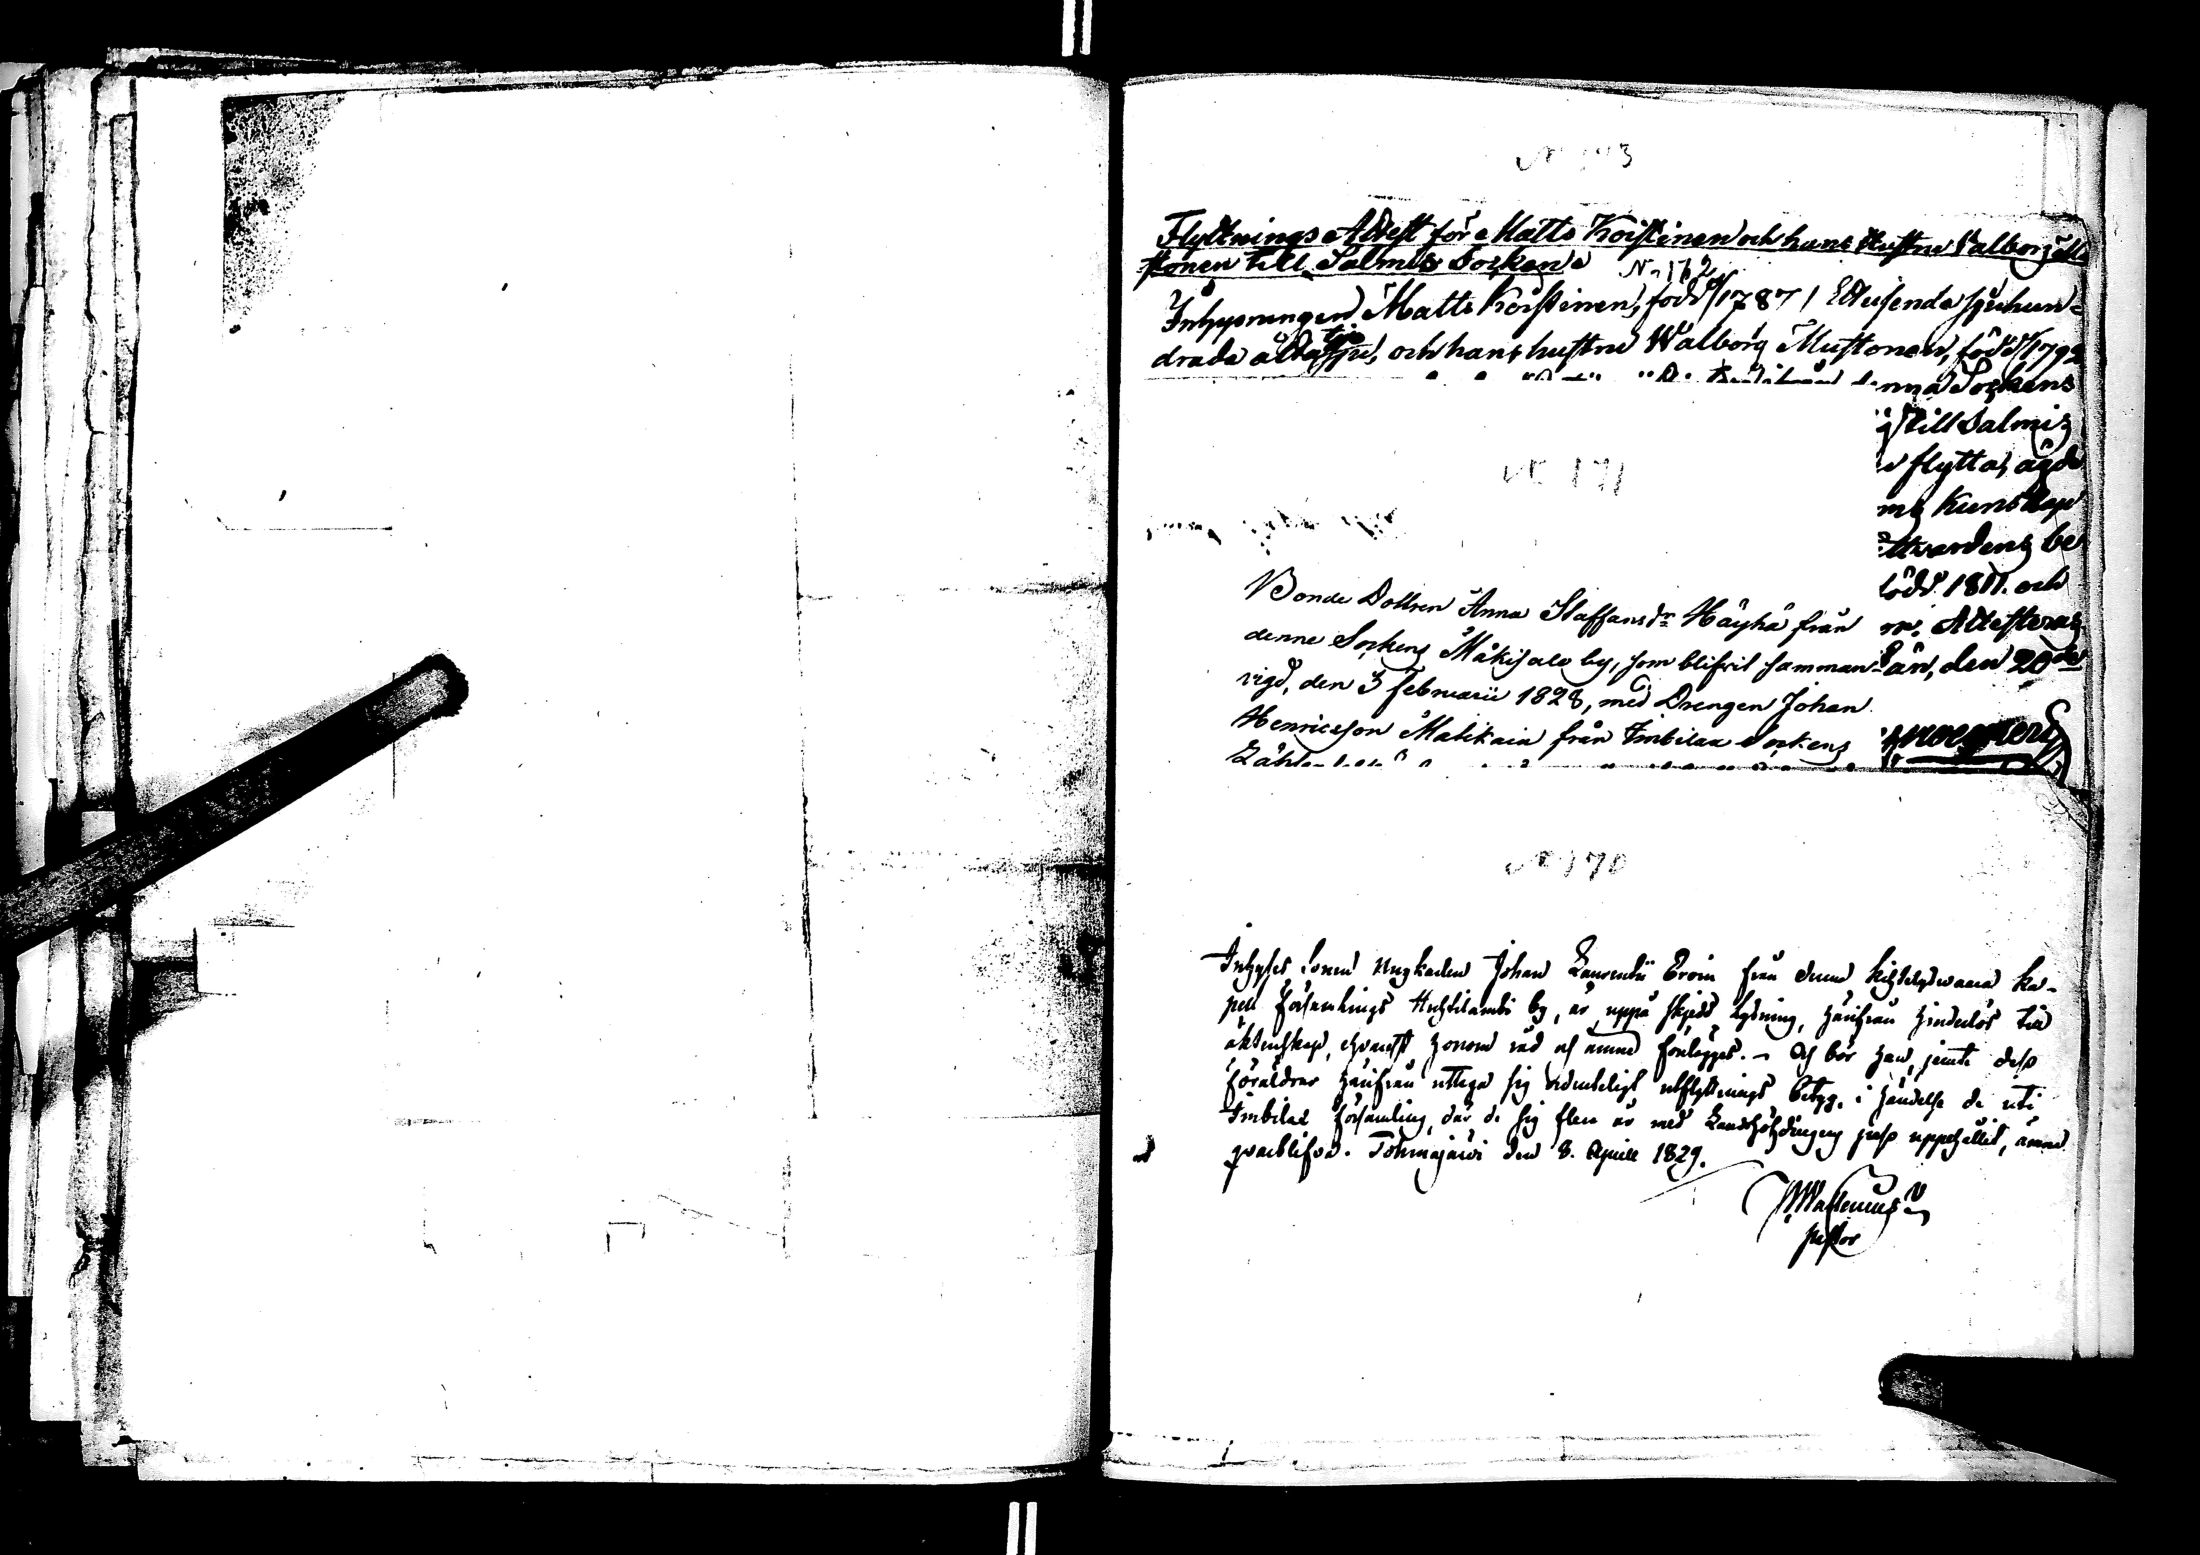 N 173
Flyttnings Attest för Matts Koistinen och hans Hustru Valborg Mu
stonen till Salmis Socken
N 172
Inhysningen Matts Koistinen, född /1787/ Ettusende sjuhun-
drade åttatijo sju, och hans hustru Walborg Mustonen, född /1792
nna Sockens
till Salmis
flytta, ägde
Kunskap
ttvardens be
född 1811. och
Attesteras
än, den 20de
N 171
Bonde Dottren Anna Staffansdr Häyhä från
denne Sockens Mäkisalo by, som blifvit samman-
vigd, den 3 februarii 1828, med Drengen Johan
Henricsson Matikain från Imbilax Sockens
N 170
Inhyses Sonen Ungkarlen Johan Laurentii Eroin från denna Kihtelysvaara Ka-
pell Församlings Huhtilambi by, är uppå skjedd Lysning, härifrån hinderlös till
äktenskap, honom råd och ämne förelägges. – Och bör han, jemte dess
föräldrar härifrån uttaga sig ordenteligt utflyttnings betyg, i händelse de uti
Imbilax församling, där de sig flere år med Landshöfdingens pass uppehållit, ämna
qvarblifva. Tohmajärvi den 8. Aprill 1829.
Wallenius
pastor